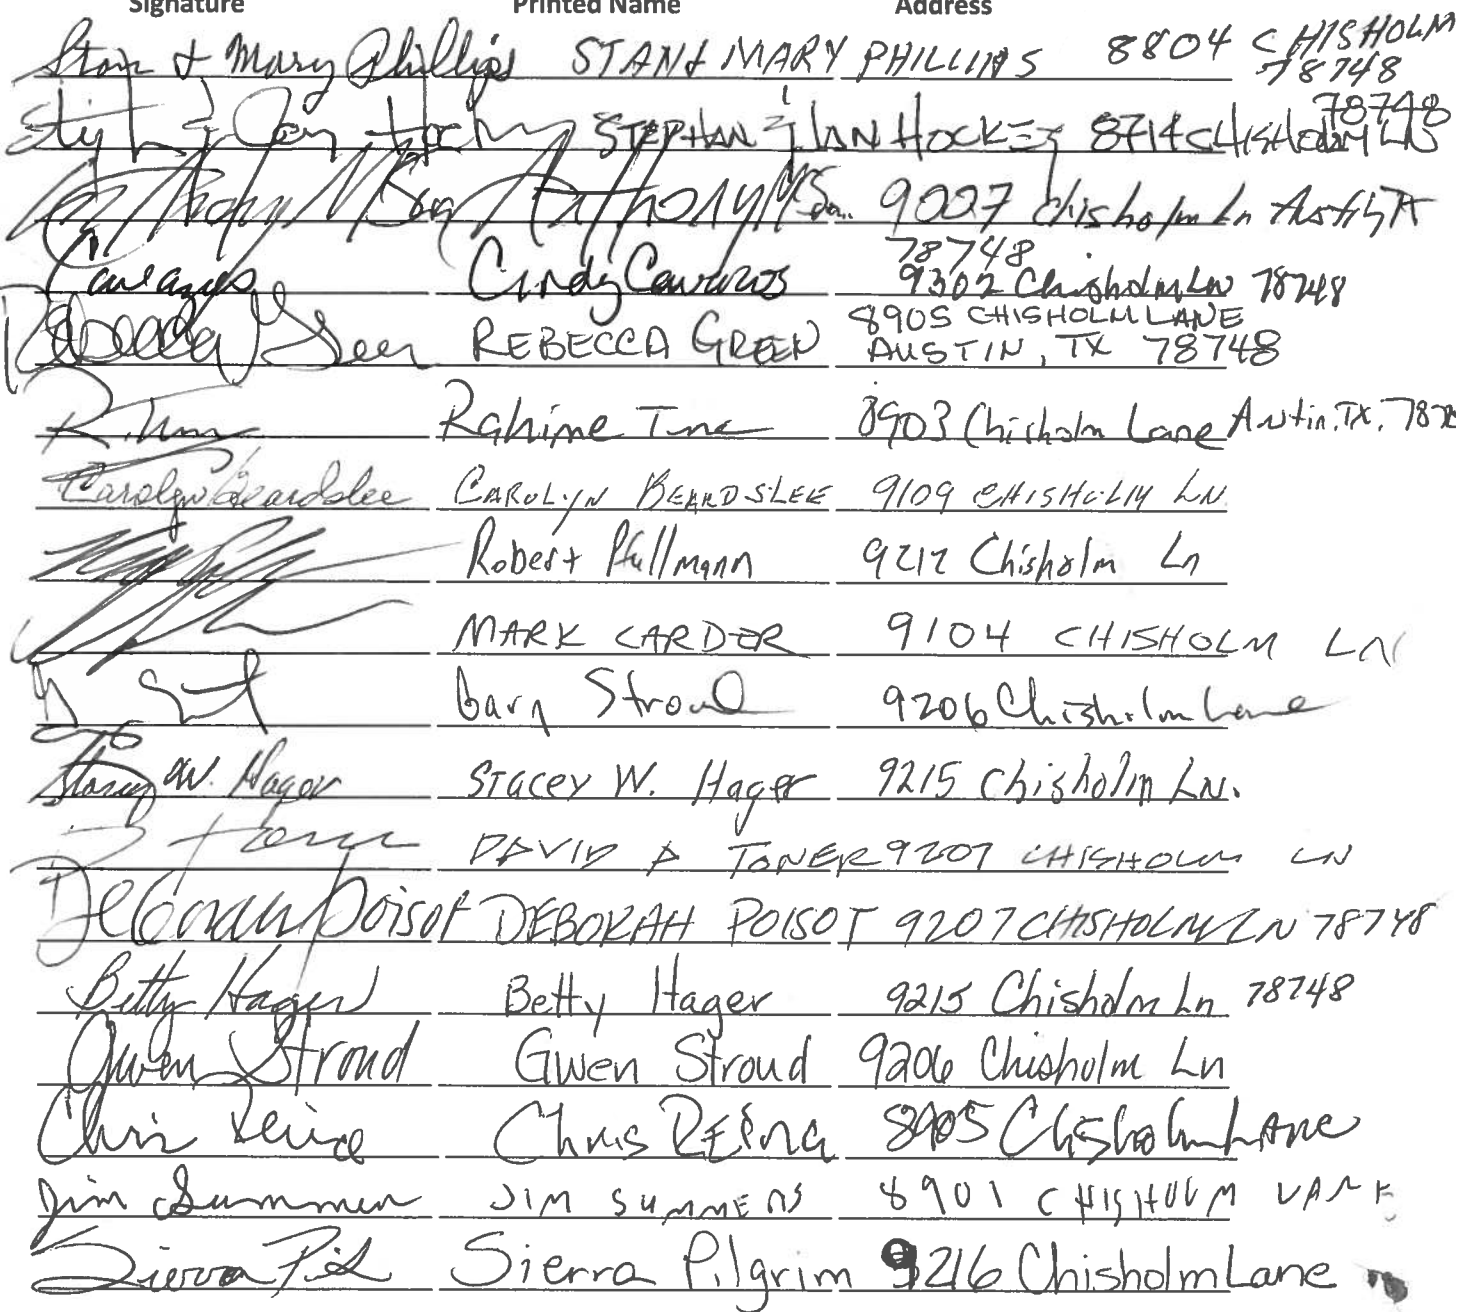 Signature Printed Name Address
Stan & Mary Phillips STAN & MARY PHILLIPS 8804 CHISHOLM 78748
STEPHAN & JAN HOCKEY 8714 CHISHOLM LN 78748
Anthony 9027 Chisholm Ln Austin TX 78748
Cavazos Cindy Cavazos 9302 Chisholm Ln 78748
Rebecca Green REBECCA GREEN 8905 CHISHOLM LANE AUSTIN, TX 78748
R. Tunc Rahime Tunc 8903 Chisholm Lane Austin, TX,
Carolyn Beardslee CAROLYN BEARDSLEE 9109 CHISHOLM LN
Robert Pfullmann 9212 Chisholm Ln
MARK CARDER 9104 CHISHOLM LN
Gary Stroud 9206 Chisholm Lane
Stacey W. Hager Stacey W. Hager 9215 Chisholm Ln.
DAVID A TONER 9207 CHISHOLM LN
Deborah Poisot DEBORAH POISOT 9207 CHISHOLM LN 78748
Betty Hager Betty Hager 9215 Chisholm Ln 78748
Gwen Stroud Gwen Stroud 9206 Chisholm Ln
Chris Reina Chris REina 8905 Chisholm Lane
Jim Summers JIM SUMMERS 8901 CHISHOLM LANE
Sierra Pil Sierra Pilgrim 9216 Chisholm Lane